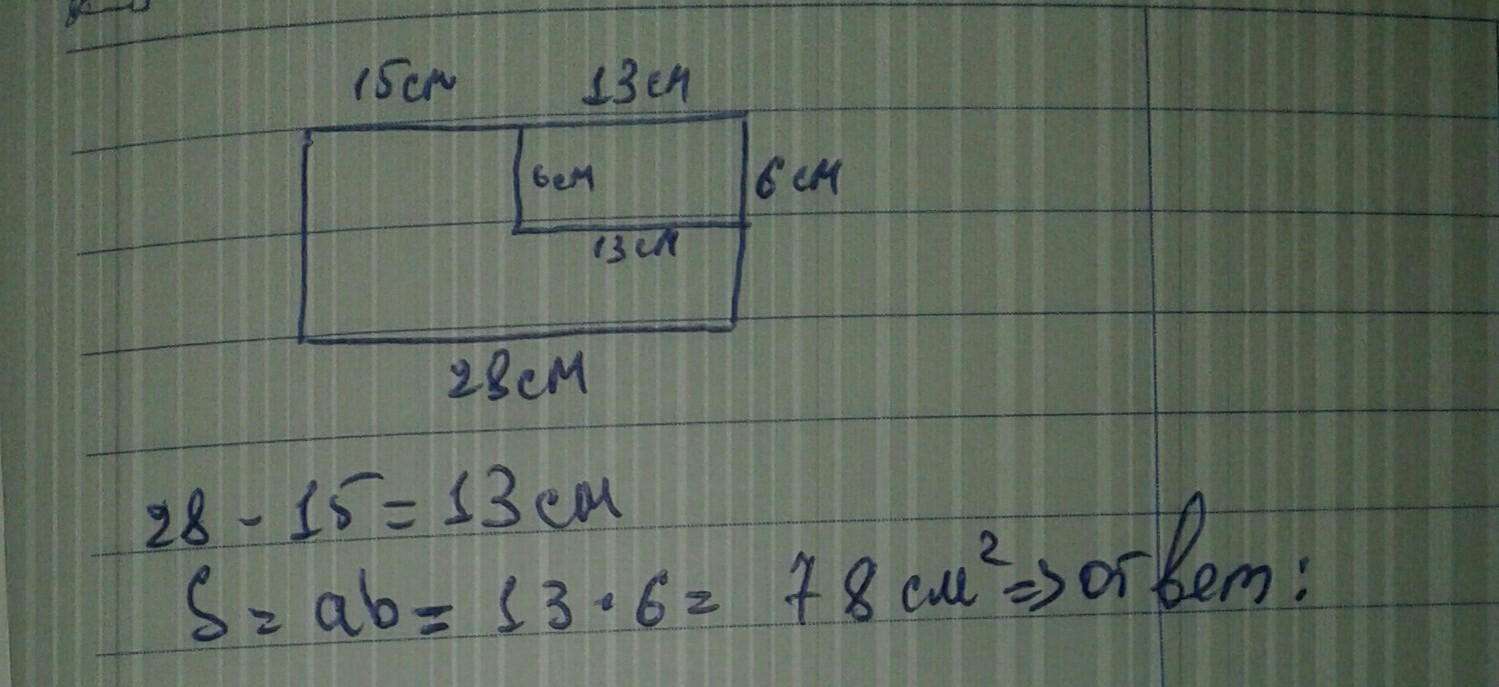 15см 13см
6см 6см
13см
28см
28 - 15 = 13 см
S = ab = 13 · 6 = 78 см² => ответ: